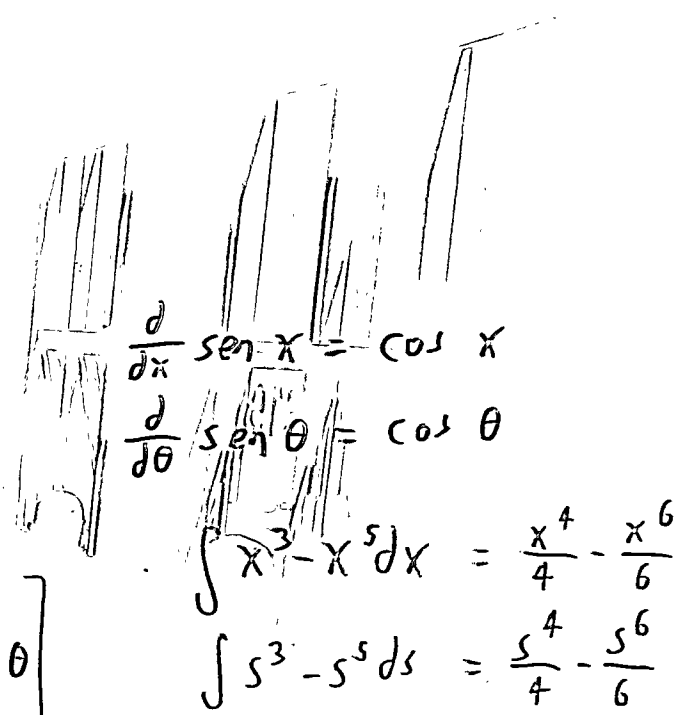 d/dx sen x = cos x
d/dθ sen θ = cos θ
∫ x³ - x⁵ dx = x⁴/4 - x⁶/6
θ] ∫ s³ - s⁵ ds = s⁴/4 - s⁶/6